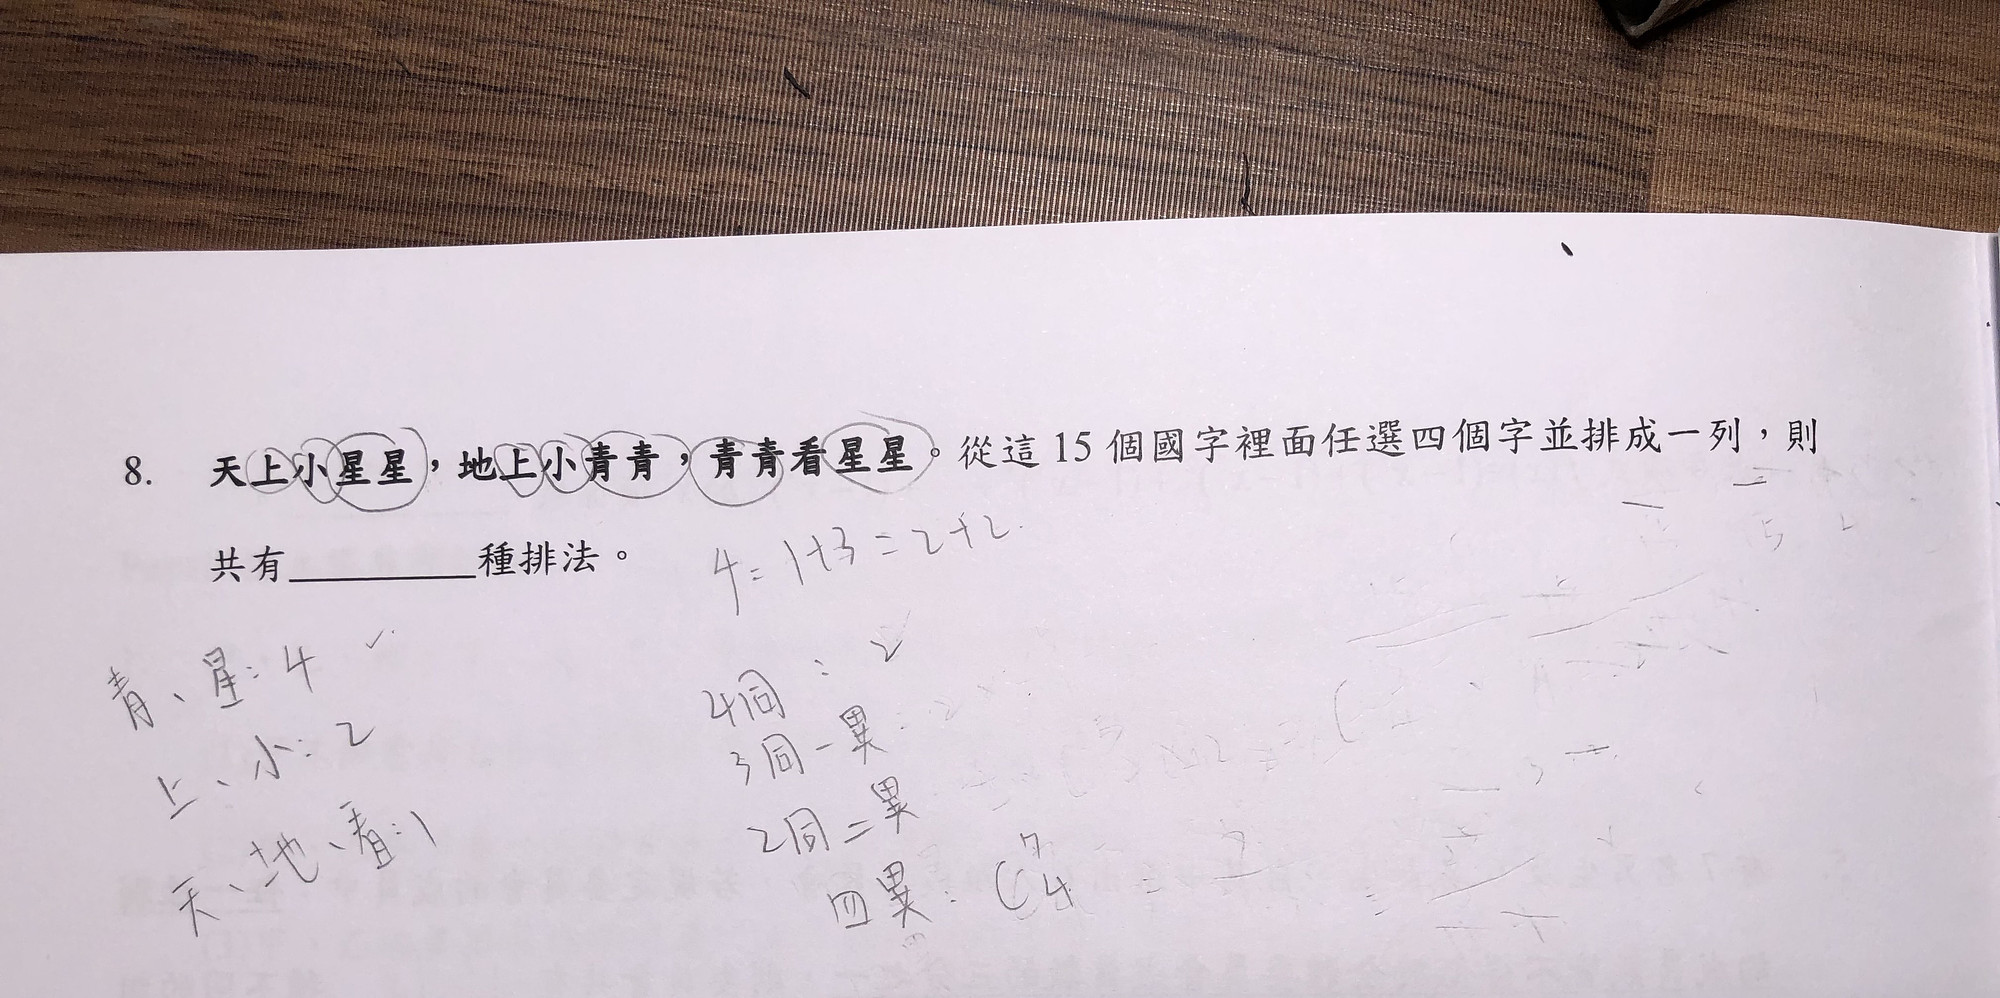 8. 天上小星星，地上小青青，青青看星星。從這 15 個國字裡面任選四個字並排成一列，則
共有________種排法。
4=1+3=2+2
青、星:4 ✓
上、小:2
天、地、看:1
4同:2
3同一異:
2同二異
四異:C⁷₄